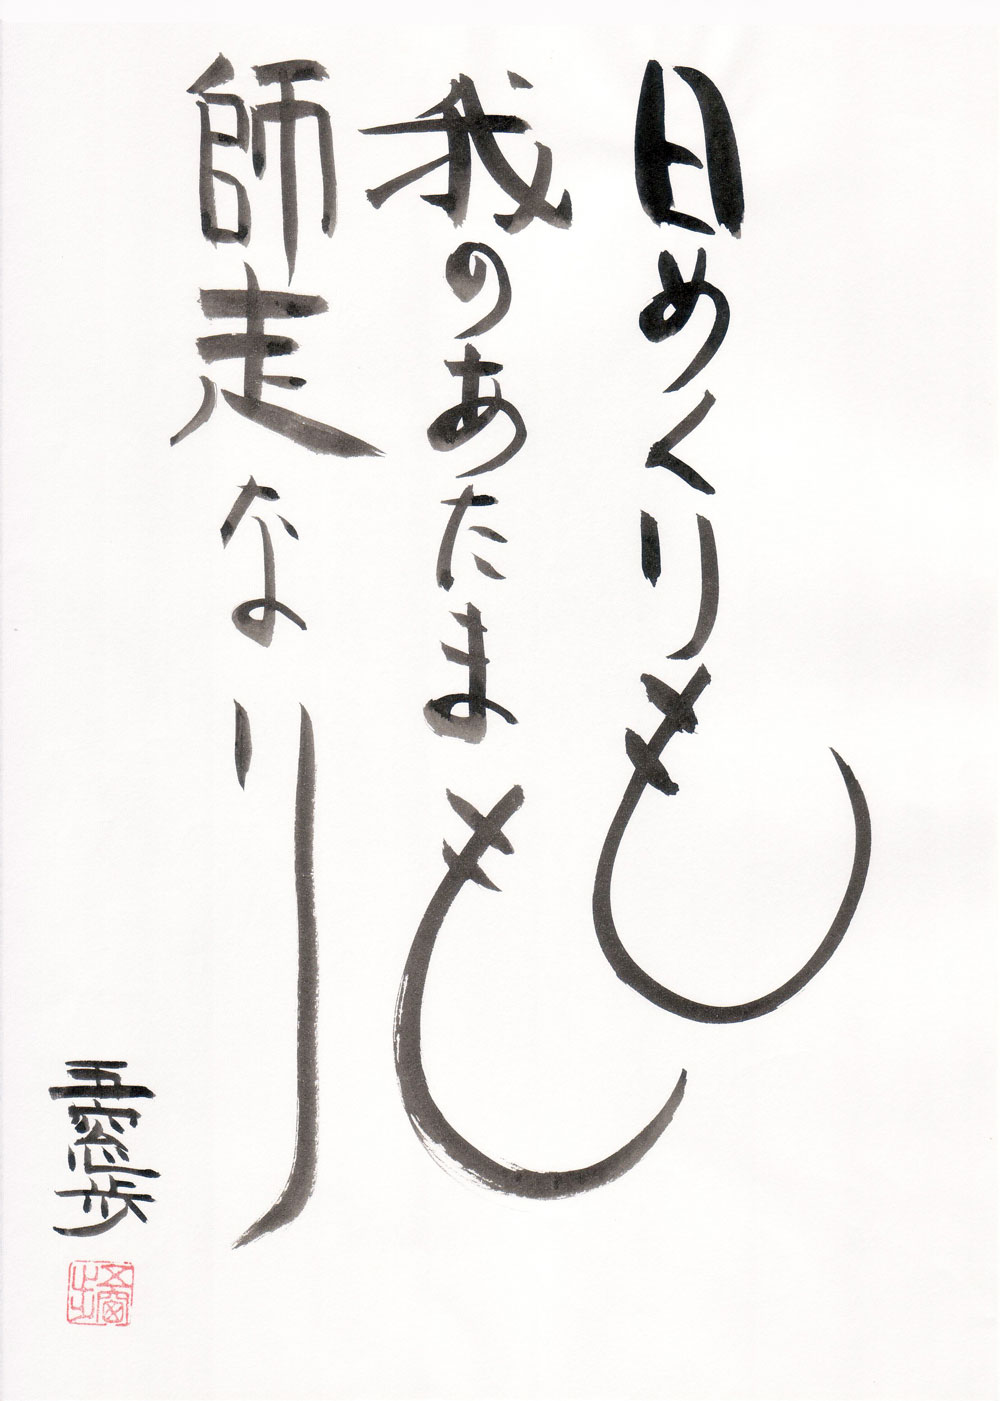 日めくりも
我のあたまも
師走なり
五窓歩